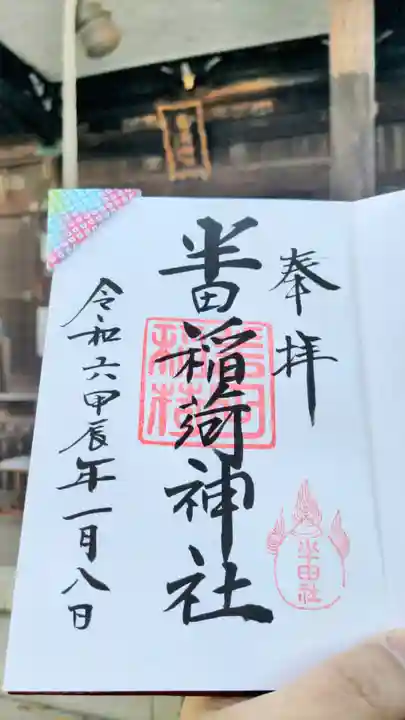 奉拝
半田稲荷神社
令和六甲辰年一月八日
半田社